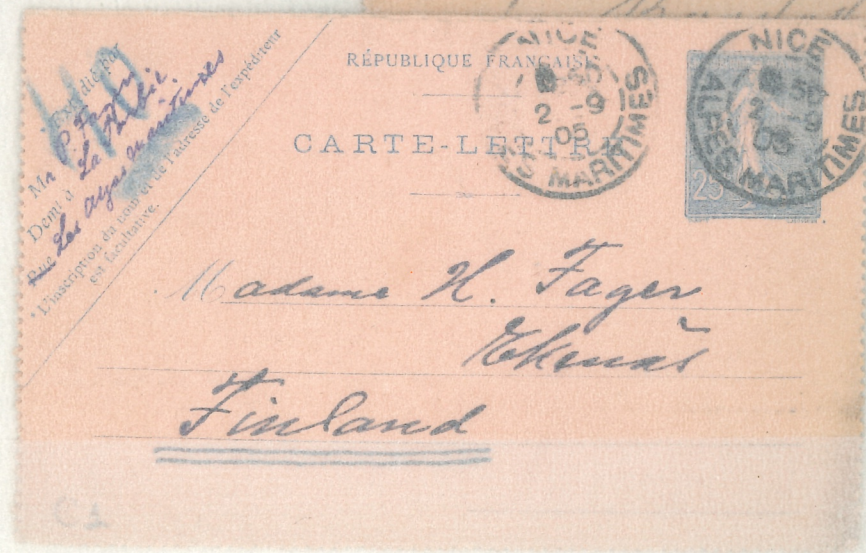 Expédié par
Mr P. Fager
Demt à La Turbie.
Rue Les Alpes maritimes
* L'inscription du nom et de l'adresse de l'expéditeur
est facultative.
RÉPUBLIQUE FRANÇAISE
CARTE-LETTRE
NICE
50
2 -9
05
ES MARITIMES
NICE
50
2 -9
05
ALPES MARITIMES
25
Madame H. Fager
Ekenäs
Finland